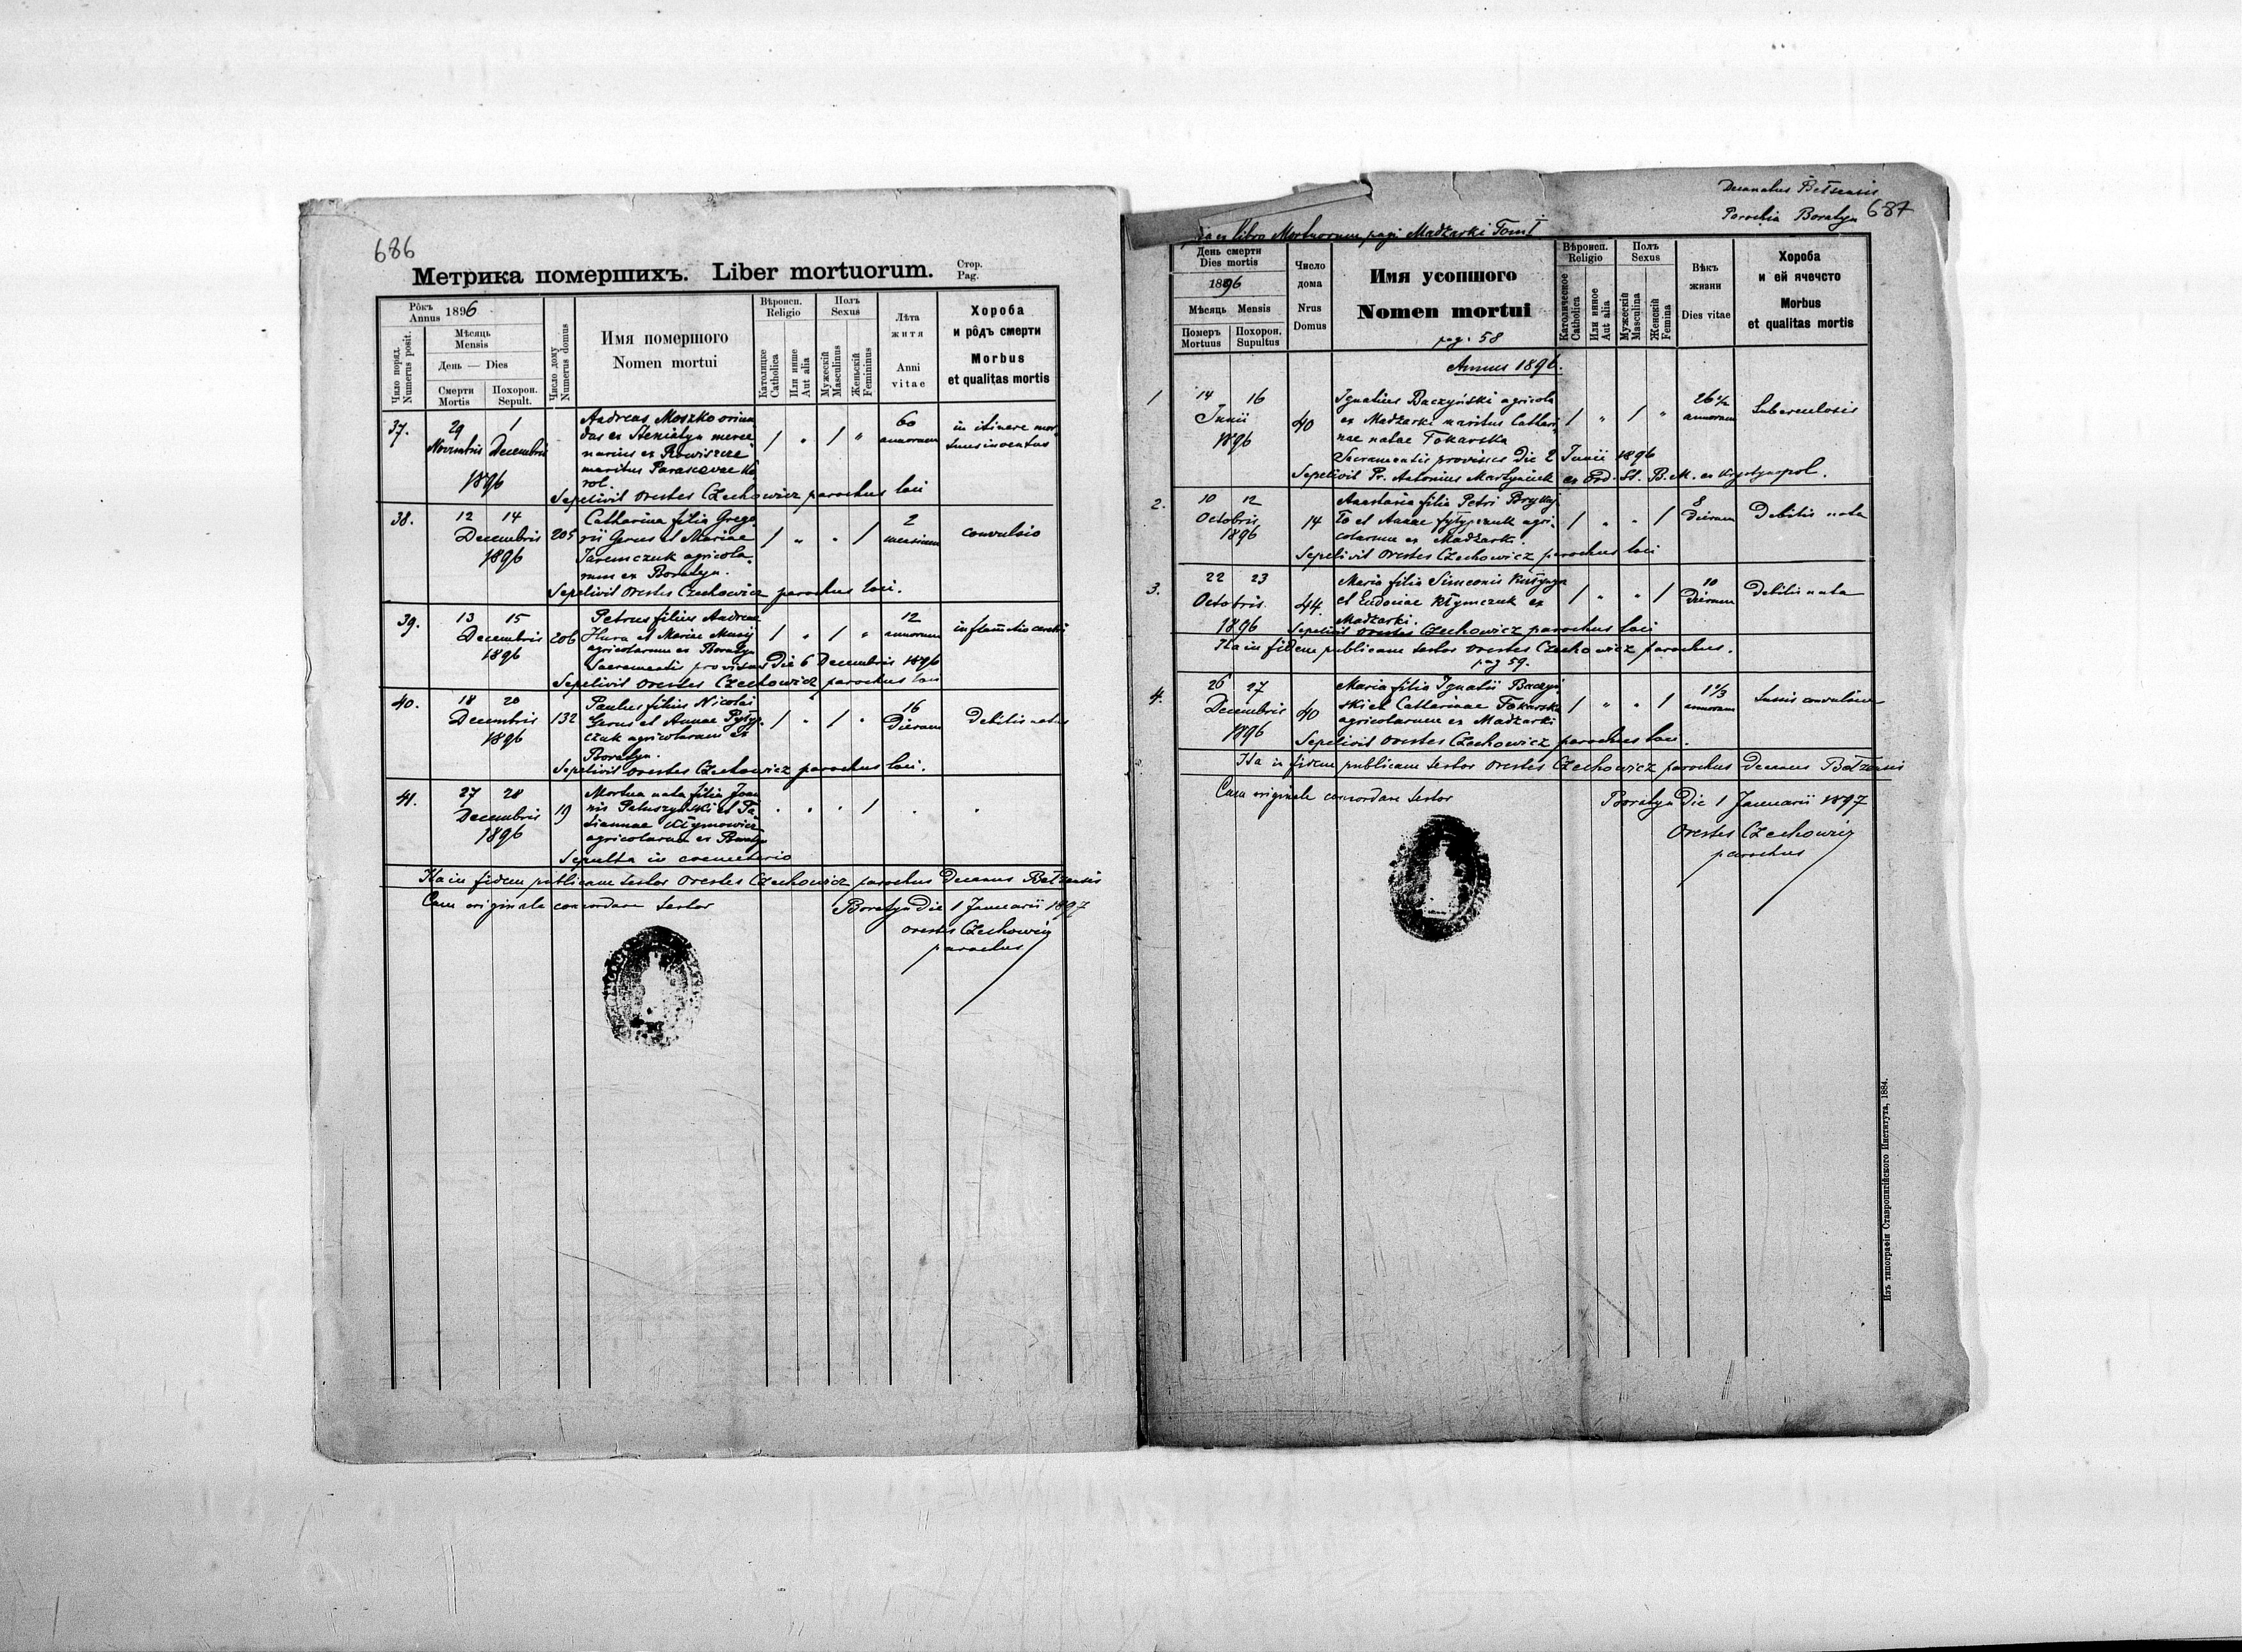 686
Метрика померших​ъ. Liber mortuorum. Стор. Pag.
Рôкъ Annus 1896
Чило поряд. Numerus posit.
Мѣсяць Mensis
День — Dies
Смерти Mortis
Похорон. Sepult.
Число дому Numerus domus
Имя помершого
Nomen mortui
Вѣроисп. Religio
Католицке Catholica
Или инше Aut alia
Полъ Sexus
Мужескій Masculinus
Женьскій Femininus
Лѣта житя
Anni vitae
Хороба
и рôдъ смерти
Morbus
et qualitas mortis
37. 29 Novembris 1 Decembris 1896
Andreas Moszko oriun
dus ex Steniatyn merce
narius ex
maritus Parascevae Ka
rol.
/ " / " 60 annorum
in itinere mor
tuus inventus
Sepelivit Orestes Czechowicz parochus loci
38. 12 14 Decembris 1896 205
Catharina filia Grego
rii Gerus et Mariae
Jaremczuk agricola-
rum ex Boratyn.
/ " " / 2 mensium
convulsio
Sepelivit Orestes Czechowicz parochus loci.
39. 13 15 Decembris 1896 206
Petrus filius Andreae
Hura et Mariae
agricolarum ex Boratyn
/ " / " 12 annorum
Sacramentis provisus Die 6 Decembris 1896
Sepelivit Orestes Czechowicz parochus loci
40. 18 20 Decembris 1896 132
Paulus filius Nicolai
Gerus et Annae Pyłyp-
czuk agricolarum ex
Boratyn.
/ " / " 16 Dierum
Debilis natus
Sepelivit Orestes Czechowicz parochus loci.
41. 27 28 Decembris 1896 19
Mortua nata filia Joan
nis et Ta
tiannae Kłymowicz
agricolarum ex Boratyn
Sepulta in coemeterio
Ita in fidem publicam testor Orestes Czechowicz parochus Decanus Bełzensis
Cum originale concordare testor
Boratyn Die 1 Januarii 1897
Orestes Czechowicz
parochus
Decanatus Bełzensis
Parochia Boratyn 687
ex libro Mortuorum pagi Madżarki Tom I
День смерти
Dies mortis
1896
Мѣсяць Mensis
Померъ Mortuus
Похорон. Supultus
Число дома
Nrus Domus
Имя усопшого
Nomen mortui
pag. 58
Вѣроисп. Religio
Католическое Catholica
Или инное Aut alia
Полъ Sexus
Мужескій Masculina
Женскій Femina
Вѣкъ жизни
Dies vitae
Хороба
и ей ячечсто
Morbus
et qualitas mortis
Annus 1896.
1 14 16 Junii 1896 40
Ignatius Baczyński agricola
ex Madżarki maritus Cathari
nae natae Tokarska
/ " / " 26 annorum
Tuberculosis
Sacramentis provisus Die 2 Junii 1896
Sepelivit Pr. Antonius Martyniuk ex Ord. St. B. M. ex Krystynopol.
2. 10 12 Octobris 1896 14
Anastasia filia Petri
et Annae agri-
colarum ex Madżarki.
/ " " / 8 Dierum
Debilis nata
Sepelivit Orestes Czechowicz parochus loci
3. 22 23 Octobris 1896 44.
Maria filia Simeonis
et Eudociae Kłymczuk ex
Madżarki.
/ " " / 10 Dierum
Debilis nata
Sepelivit Orestes Czechowicz parochus loci
Ita in fidem publicam testor Orestes Czechowicz parochus.
pag 59.
4. 26 27 Decembris 1896 40
Maria filia Ignatii Baczyń
ski et Catharinae Tokarska
agricolarum ex Madżarki
/ " " / 1 1/3 annorum
Tussis convulsiva
Sepelivit Orestes Czechowicz parochus loci.
Ita in fidem publicam testor Orestes Czechowicz parochus Decanus Bełzensis
Cum originale concordare testor
Boratyn Die 1 Januarii 1897
Orestes Czechowicz
parochus
Изъ типографіи Ставропигійского Института, 1884.